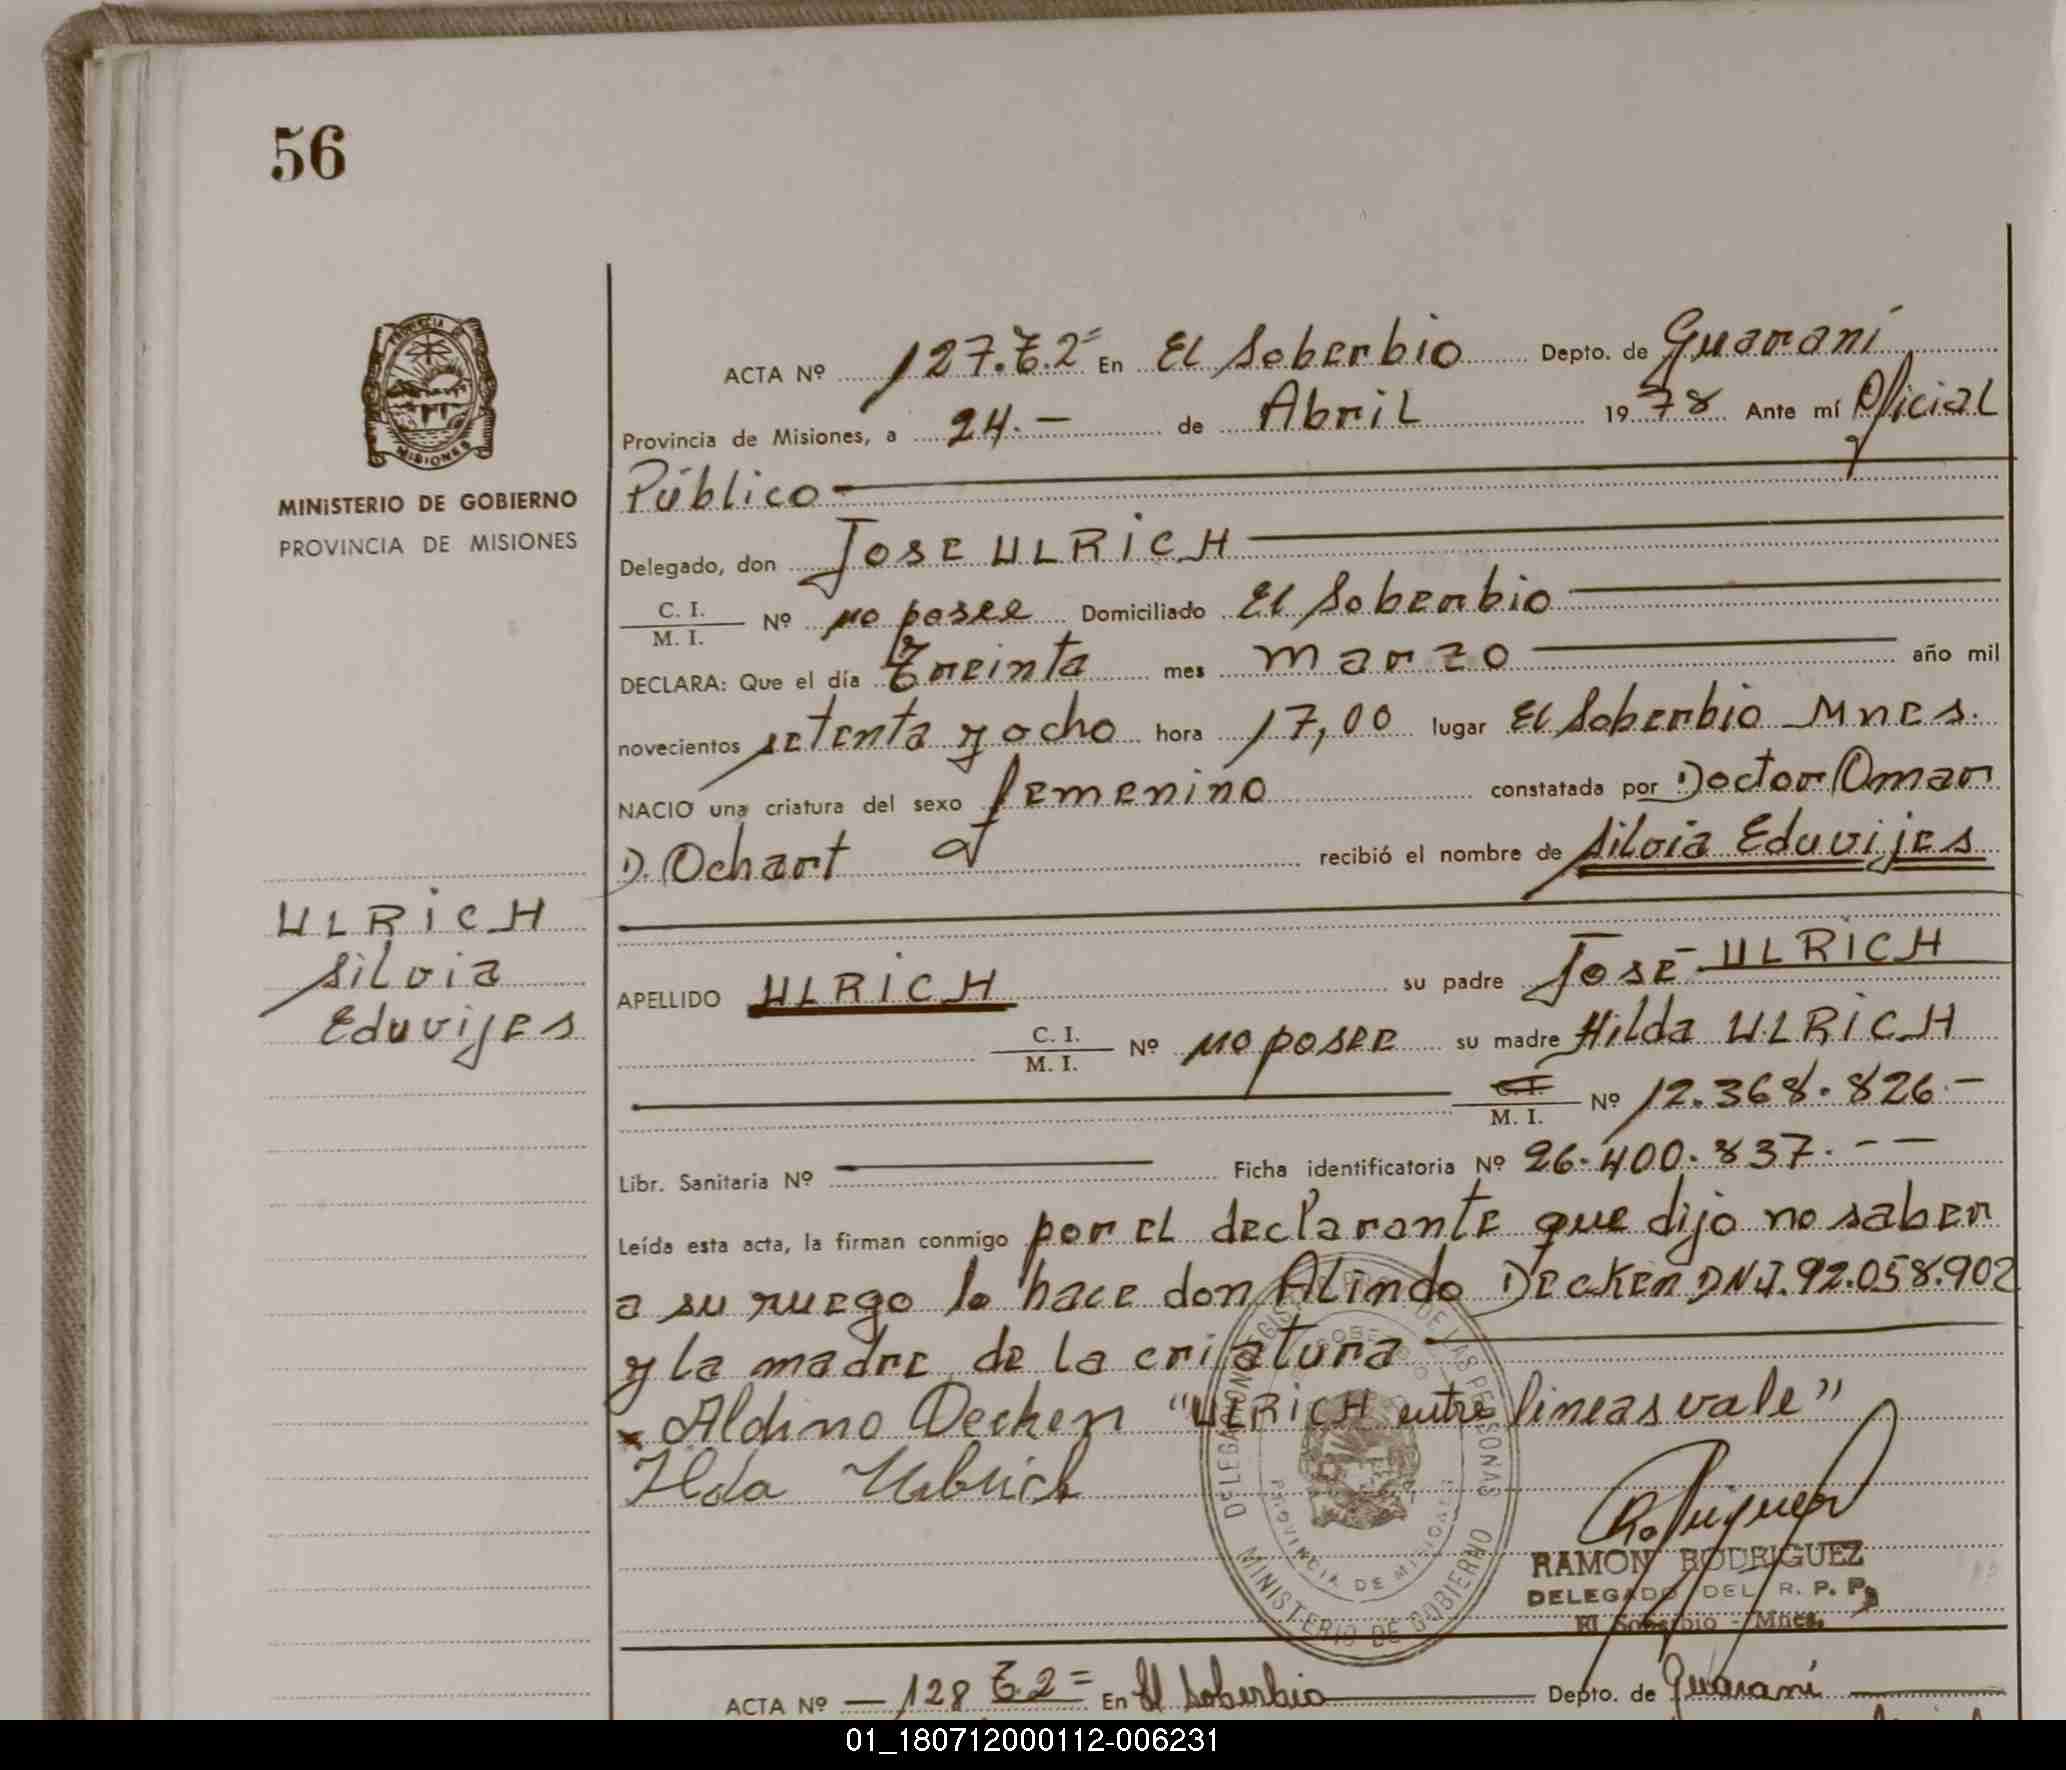 56
PROVINCIA
MISIONES
MINISTERIO DE GOBIERNO
PROVINCIA DE MISIONES
ACTA Nº 127.T.2º En El Soberbio Depto. de Guaraní
Provincia de Misiones, a 24.- de Abril 1978 Ante mí Oficial
Público
Delegado, don José ULRICH
C. I. / M. I. Nº no posee Domiciliado El Soberbio
DECLARA: Que el día Treinta mes marzo año mil
novecientos setenta y ocho hora 17,00 lugar El Soberbio Mnes.
NACIO una criatura del sexo femenino constatada por Doctor Omar
D. Ochart recibió el nombre de Silvia Eduvijes
ULRICH
Silvia
Eduvijes
APELLIDO ULRICH su padre José ULRICH
C. I. / M. I. Nº no posee su madre Hilda ULRICH
C. I. / M. I. Nº 12.368.826.-
Libr. Sanitaria Nº Ficha identificatoria Nº 26.400.837.--
Leída esta acta, la firman conmigo por el declarante que dijo no saber
a su ruego lo hace don Alindo Decker DNI. 92.058.902
y la madre de la criatura
x Aldino Decker "ULRICH entre lineas vale"
Ilda
MINISTERIO DE GOBIERNO
PROVINCIA DE MISIONES
RAMON RODRIGUEZ
DELEGADO DEL R. P. P.
El Soberbio - Mnes.
ACTA Nº - 128 T.2= En El Soberbio Depto. de Guaraní
01_180712000112-006231